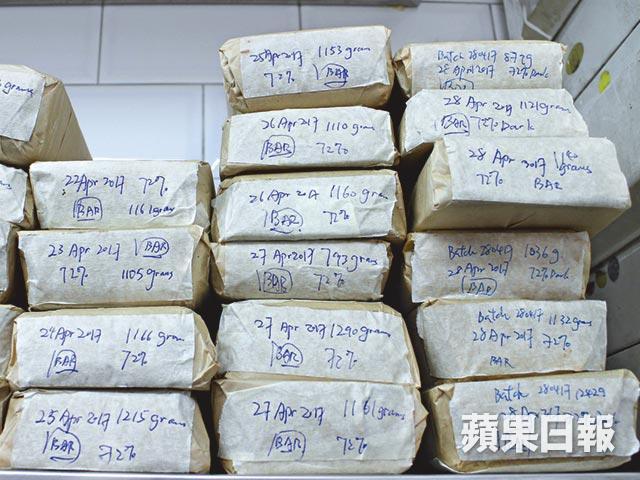 grams
22 Apr 2017 72%
BAR 1161 grams
23 Apr 2017 BAR
72% 1105 grams
24 Apr 2017 1166 grams
BAR 72%
25 Apr 2017 1215 grams
BAR 72%
25 Apr 2017 1153 gram
72% BAR
26 Apr 2017 1110 grams
BAR 72%
26 Apr 2017 1160 grams
BAR 72%
27 Apr 2017 793 grams
BAR 72%
27 Apr 2017 1290 grams
BAR 72%
27 Apr 2017 1161 grams
BAR 72%
Batch 280417 872g
28 April 2017 72% Dark
BAR
28 Apr 2017 1121 grams
BAR 72% Dark
28 Apr 2017
grams
72% BAR
Batch 280417 1036g
28 Apr 2017 72% Dark
BAR
Batch 280417 1132 grams
28 Apr 2017 72%
BAR
Batch 280417
28 Apr 2017
BAR
蘋果日報